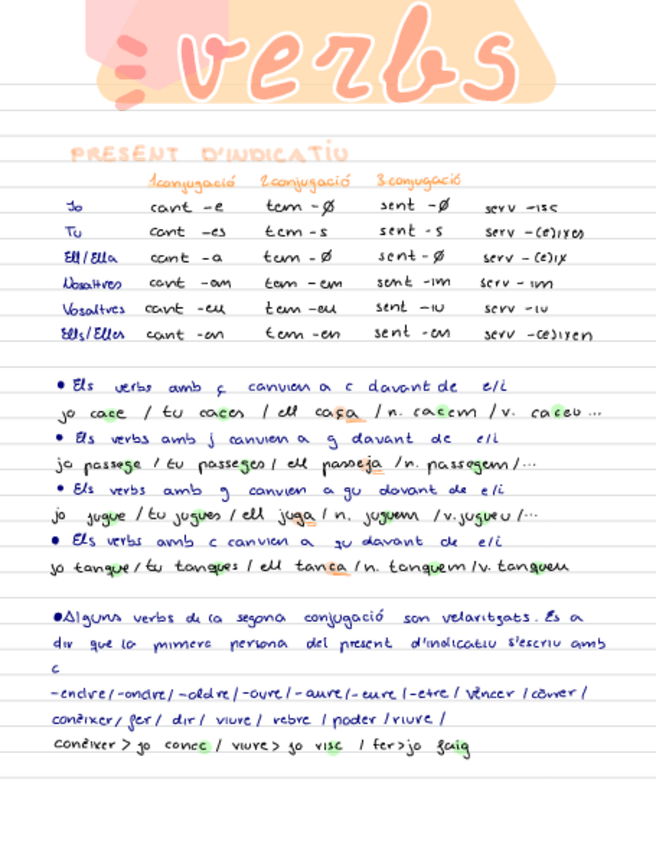 verbs
PRESENT D'INDICATIU
1conjugació 2conjugació 3conjugació
Jo cant -e tem -Ø sent -Ø serv -isc
Tu cant -es tem -s sent -s serv -(e)ixes
Ell/Ella cant -a tem -Ø sent -Ø serv -(e)ix
Nosaltres cant -am tem -em sent -im serv -im
Vosaltres cant -eu tem -eu sent -iu serv -iu
Ells/Elles cant -en tem -en sent -en serv -(e)ixen
• Els verbs amb ç canvien a c davant de e/i
jo cace / tu caces / ell caça / n. cacem / v. caceu ...
• Els verbs amb j canvien a g davant de e/i
jo passege / tu passeges / ell passeja / n. passegem / ...
• Els verbs amb g canvien a gu davant de e/i
jo jugue / tu jugues / ell juga / n. juguem / v. jugueu / ...
• Els verbs amb c canvien a qu davant de e/i
jo tanque / tu tanques / ell tanca / n. tanquem / v. tanqueu
• Alguns verbs de la segona conjugació son velaritzats. És a
dir que la primera persona del present d'indicatiu s'escriu amb
c
-endre/-ondre/-oldre/-oure/-aure/-eure/-etre/ vèncer / córrer /
conèixer/ fer/ dir/ viure/ rebre / poder / riure /
conèixer > jo conec / viure > jo visc / fer > jo faig